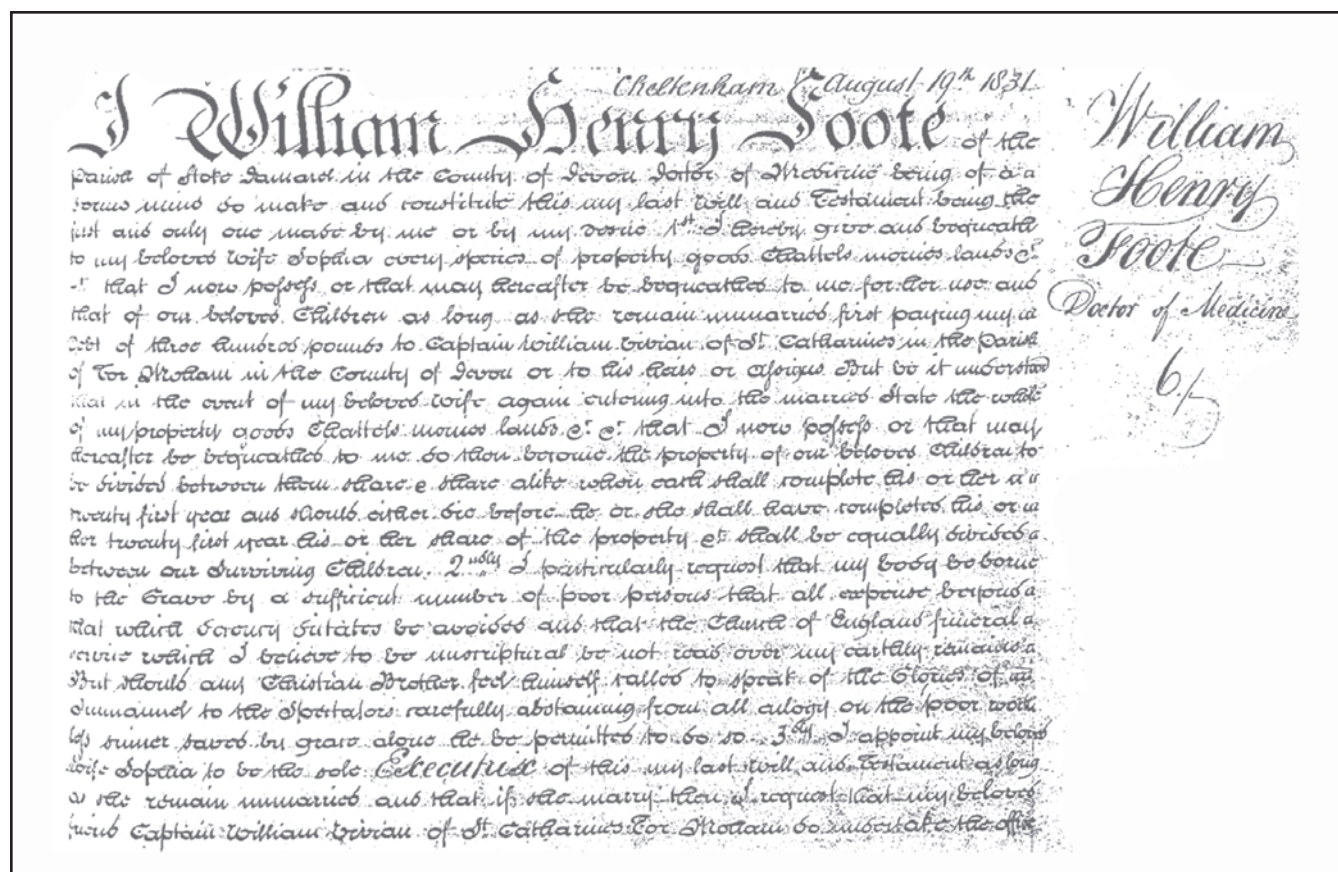 Cheltenham August 19th 1831
I William Henry Foote of the
parish of Stoke Damarel in the County of Devon Doctor of Medicine being of a
sound mind do make and constitute this my last Will and Testament being the
just and only one made by me or by my desire 1st I hereby give and bequeath
to my beloved wife Sophia every species of property goods Chattels monies lands &c
&c that I now possess or that may hereafter be bequeathed to me for her use and
that of our beloved Children as long as she remain unmarried first paying my
debt of three hundred pounds to Captain William Vivian of St Catharines in the Parish
of Tor Moham in the County of Devon or to his heirs or assigns But be it understood
that in the event of my beloved wife again entering into the married State the whole
of my property goods Chattels monies lands &c &c that I now possess or that may
hereafter be bequeathed to me do then become the property of our beloved Children to
be divided between them share & share alike when each shall complete his or her
twenty first year and should either die before he or she shall have completed his or
her twenty first year his or her share of the property &c shall be equally divided
between our surviving Children. 2ndly I particularly request that my body be borne
to the Grave by a sufficient number of poor persons that all expense beyond
that which decency dictates be avoided and that the Church of England funeral
service which I believe to be unscriptural be not read over my earthly remains
But should any Christian Brother feel himself called to speak of the Glories of
Immanuel to the Spectators carefully abstaining from all eulogy on the poor worth
less sinner saved by grace alone he be permitted to do so. 3dly I appoint my beloved
wife Sophia to be the sole Executrix of this my last will and Testament as long
as she remain unmarried and that if she marry then I request that my beloved
friend Captain William Vivian of St Catharines Tor Moham do undertake the office
William
Henry
Foote
Doctor of Medicine
6/